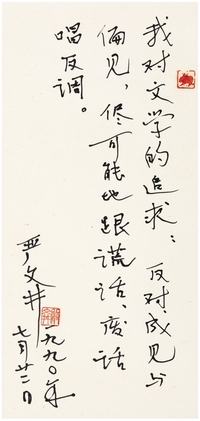 我对文学的追求：反对成见与
偏见，尽可能地跟谎话、废话
唱反调。
严文井
一九九〇年
七月廿二日